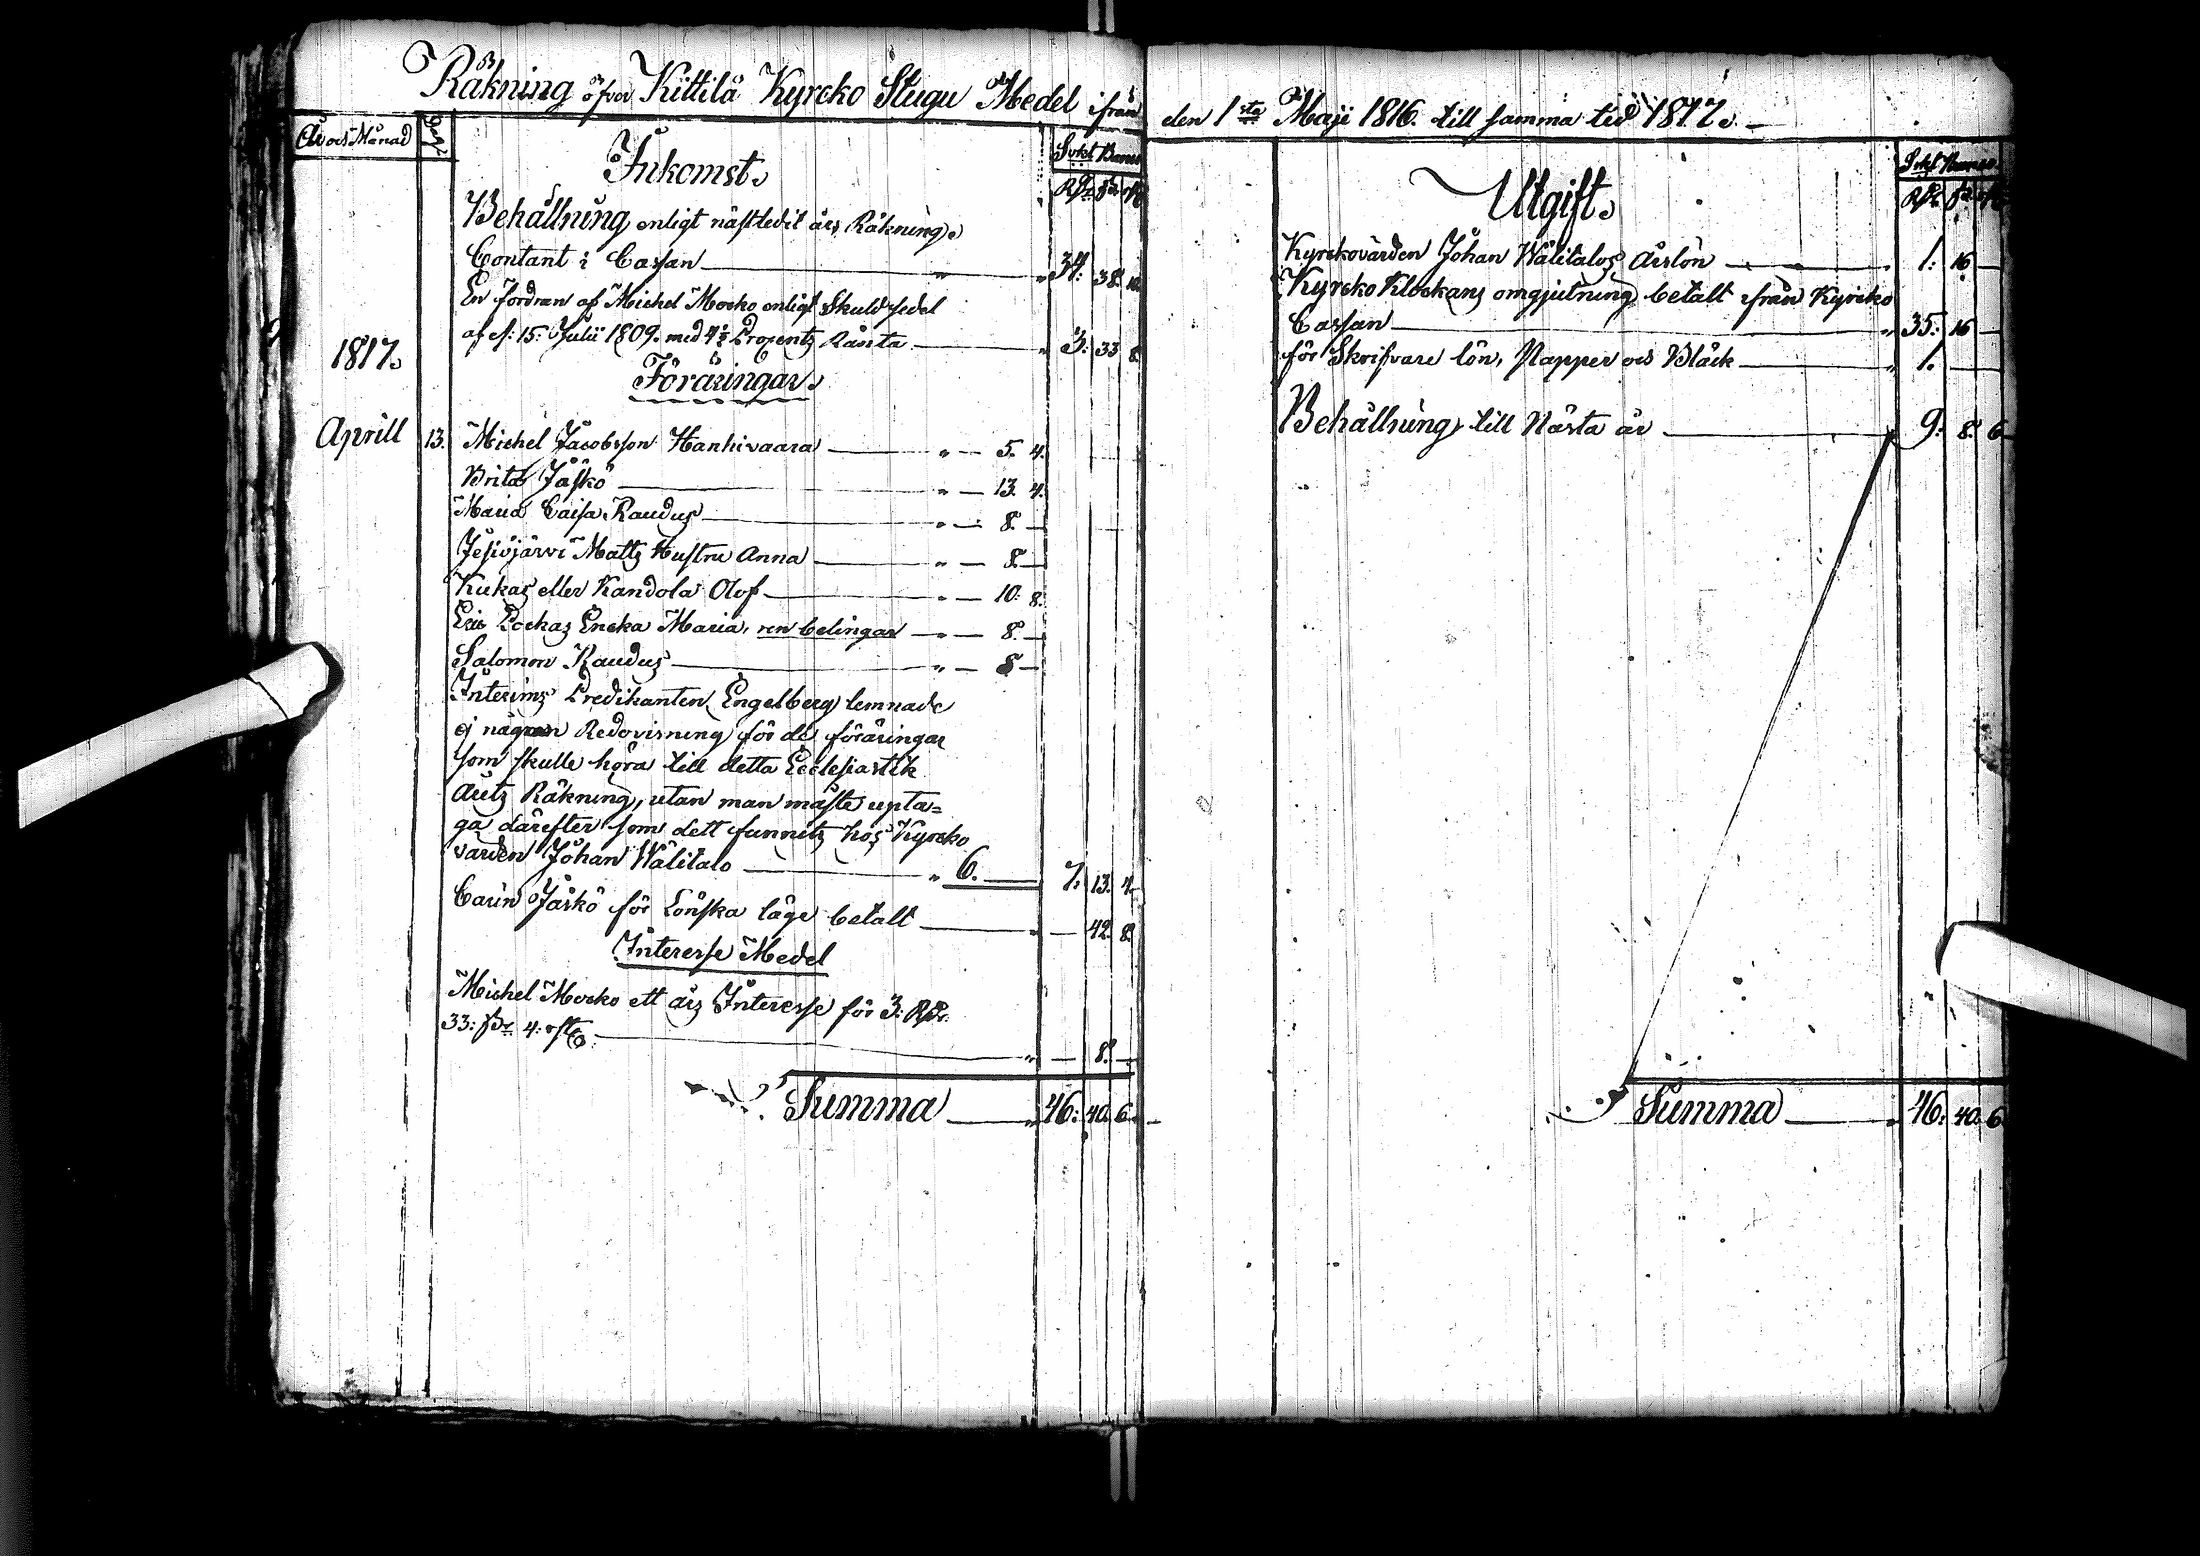 Räkning öfver Kittilä Kyrcko Stugu Medel ifrån
År och Månad
Dag
Inkomst.
Svkt Banco
Rdr sz rst
Behållning enligt nästledit års Räkning.
Contant i Cassan — " — 34: 38. 10.
En fordran af Michel Mocko enligt Skuldsedel
af d: 15. Julii 1809. med 4½ Procentz Ränta — " 3: 33 8.
1817.
Föräringar.
Aprill 13. Michel Jacobsson Hanhivaara — " — 5. 4.
Brita Jäskö — " — 13. 4.
Maria Caisa Raudus — " — 8. —
Jesiöjärvi Matts Hustru Anna — " — 8. —
Kukas eller Kandola Olof — " — 10. 8.
Eric Pockas Encka Maria, ren belingar — " — 8. —
Salomon Raudus — " — 8 —
Interims Predikanten Engelberg lemnade
ej någon Redovisning för de föräringar
som skulle höra till detta Ecclesiastik
årets Räkning, utan man måste upta=
ga därefter som dett funnits hos Kyrcko
värden Johan Wälitalo — " 6. — 7. 13. 4.
Carin Jäskö för Lönska läge betalt — " — 42. 8.
Interesse Medel
Michel Mocko ett års Interesse för 3: Rdr.
33: sz. 4: rst. — " — 8. —
Summa — " 46: 40. 6.
den 1sta Maji 1816. till samma tid 1817. —
Utgift.
Svkt Banco
Rdr sz rst
Kyrckovärden Johan Wälitalos Årslön — " 1: 16 —
Kyrcko Klockans omgjutning betalt ifrån Kyrcko
Cassan — " 35: 16 —
för Skrifvare lön, Papper och Bläck — " 1. —
Behållning till Nästa år — 9: 8. 6
Summa — " 46: 40. 6